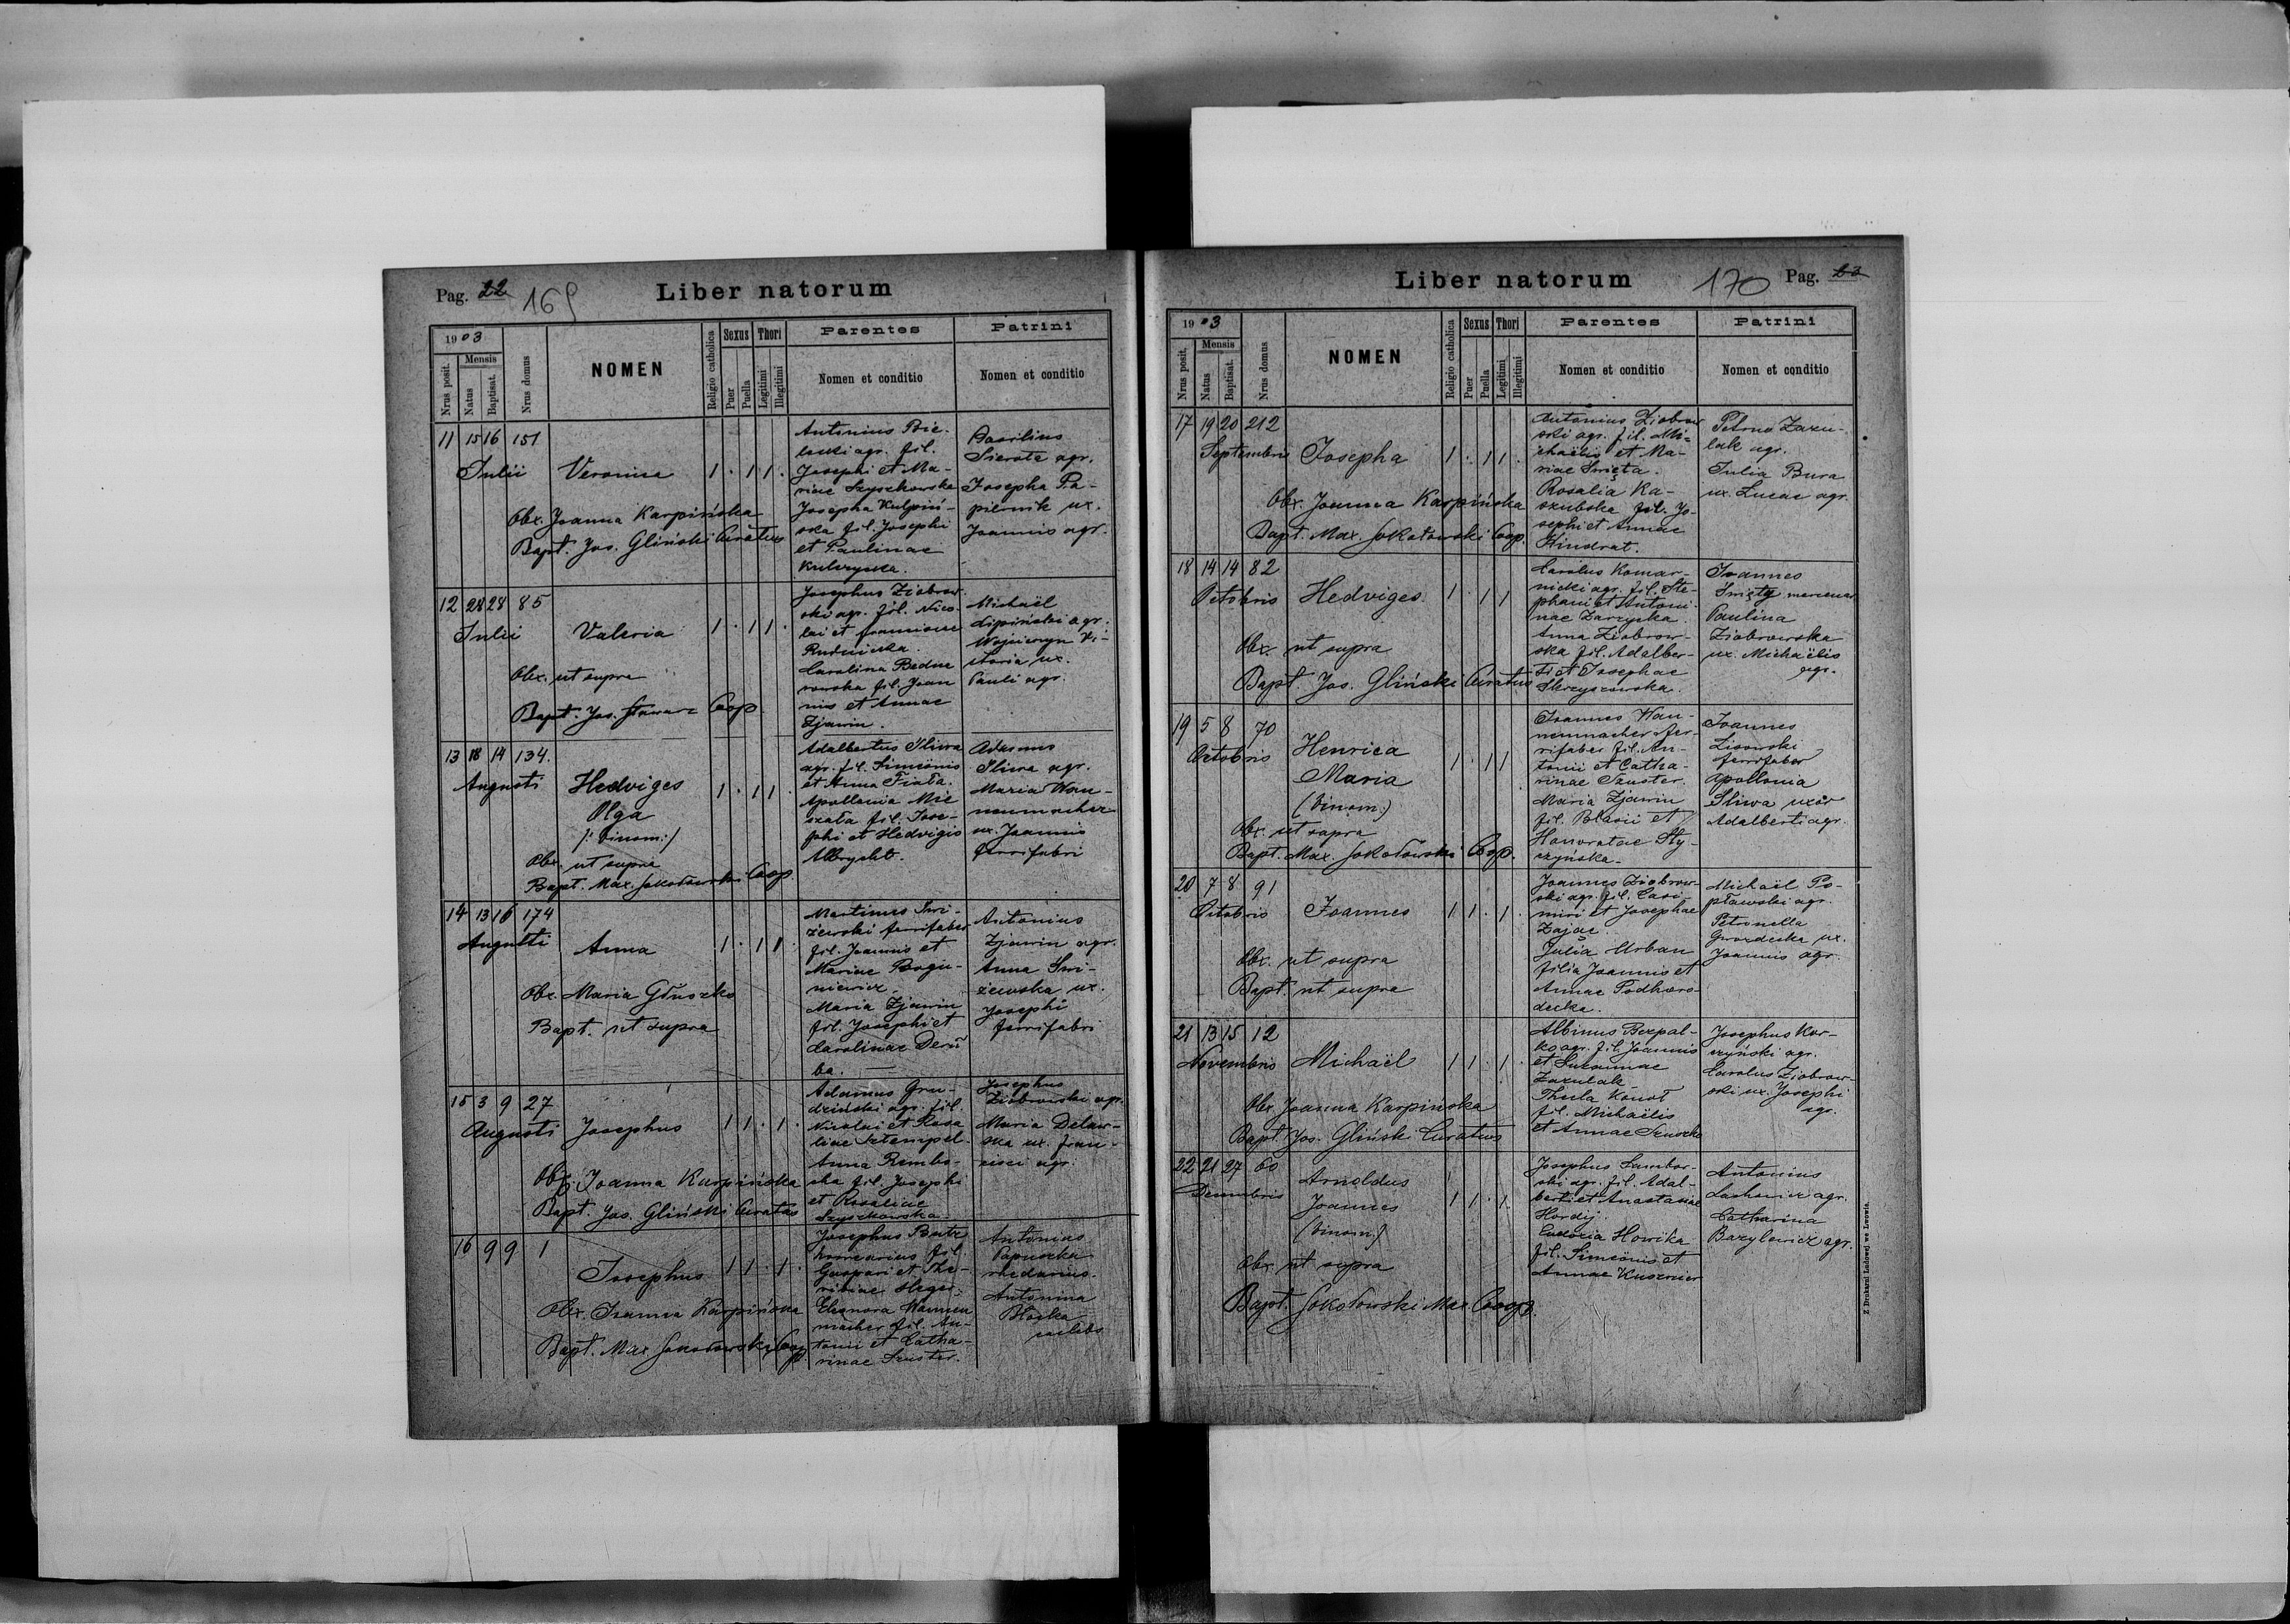 Pag. 22 169 Liber natorum
1903
Nrus posit.
Mensis
Natus
Baptisat.
Nrus domus
NOMEN
Religio catholica
Sexus
Puer
Puella
Thori
Legitimi
Illegitimi
Parentes
Nomen et conditio
Patrini
Nomen et conditio
11 15 16 151
Julii Veronica 1 . 1 1 .
Obx. Joanna Karpińska
Bapt. Jos. Gliński Curatus
Antonius Bie-
lecki agr. fil.
Josephi et Ma-
riae Szyszkowska
Josepha Kulpiń-
ska fil. Josephi
et Paulinae
Kulczycka.
Basilius
Sierota agr.
Josepha Pa-
piernik ux.
Joannis agr.
12 28 28 85
Julii Valeria 1 . 1 1 .
Obx. ut supra
Bapt. Jos. Coop
Josephus Ziobrow-
ski agr. fil. Nico-
lai et Franciscae
Rudnicka.
Carolina Bedna
rowska fil. Joan
nis et Annae
Zjawin.
Michaël
Lipiński agr.
Wojciczyn Vi-
ctoria ux.
Pauli agr.
13 18 14 134.
Augusti Hedviges 1 . 1 1 .
Olga
/: binom :/
Obx. ut supra
Bapt. Max. Sokołowski Coop.
Adalbertus Śliwa
agr. fil. Simeonis
et Anna Fiała.
Apollonia Mie
szała fil. Jose-
phi et Hedvigis
Albrycht.
Adamus
Śliwa agr.
Maria Wan-
nenmacher
ux. Joannis
ferrifabri
14 13 16 174
Augusti Anna 1 . 1 1
Obx. Maria Głuszko
Bapt. ut supra
Martinus Świ-
żewski ferrifaber
fil. Joannis et
Mariae Bogu-
niewicz.
Maria Zjawin
fil. Josephi et
Carolinae
ba.
Antonius
Zjawin agr.
Anna Świ-
żewska ux.
Josephi
ferrifabri
15 3 9 27
Augusti Josephus 1 1 . 1 .
Obx. Joanna Karpińska
Bapt. Jos. Gliński Curatus
Adamus Gru-
dziński agr. fil.
Nicolai et Rosa
liae Sztempel.
Anna Rembo-
ska fil. Josephi
et Rosaliae
Szyszkowska.
Josephus
Ziobrowski agr.
Maria Delaw-
ska ux. Fran-
cisci agr.
16 9 9 1
Josephus 1 1 . 1 .
Obx. Joanna Karpińska
Bapt. Max. Sokołowski Coop
Josephus Butz
fil.
Gaspari et The-
Eleonora Wannen
macher fil. An-
tonii et Catha-
rinae Szuster.
Antonius
Papuszka
rhedarius.
Antonina
Błocka
caelebs
Liber natorum 170 Pag. 23
1903
Nrus posit.
Mensis
Natus
Baptisat.
Nrus domus
NOMEN
Religio catholica
Sexus
Puer
Puella
Thori
Legitimi
Illegitimi
Parentes
Nomen et conditio
Patrini
Nomen et conditio
17 19 20 212
Septembris Josepha 1 . 1 1 .
Obx. Joanna Karpińska
Bapt. Max. Sokołowski Coop.
Antonius Ziobrow
ski agr. fil. Mi-
chaëlis et Ma-
riae Święta.
Rosalia Ka-
szubska fil. Jo-
sephi et Annae
Hindrat.
Petrus Zazu-
lak agr.
Julia Bura
ux. Lucae agr.
18 14 14 82
Octobris Hedviges 1 . 1 1
Obx. ut supra
Bapt. Jos. Gliński Curatus
Carolus Komar-
nicki agr. fil. Ste-
phani et Antoni-
nae Zarzycka.
Anna Ziobrow-
ska fil. Adalber-
ti et Josephae
Skrzyszowska.
Joannes
Święty mercenar
Paulina
Ziobrowska
ux. Michaëlis
agr.
19 5 8 70
Octobris Henrica 1 . 1 1
Maria
(binom.)
Obx. ut supra
Bapt. Max. Sokołowski Coop.
Joannes Wan-
nenmacher fer-
rifaber fil. An-
tonii et Catha-
rinae Szuster.
Maria Zjawin
fil. Blasii et
Honoratae Sty-
czyńska.
Joannes
Lisowski
ferrifaber
Apollonia
Śliwa uxor
Adalberti agr.
20 7 8 91
Octobris Joannes 1 1 . 1 .
Obx. ut supra
Bapt. ut supra
Joannes Ziobrow-
ski agr. fil. Casi-
miri et Josephae
Zając.
Julia Urban
filia Joannis et
Annae Podhoro-
decka.
Michaël Po-
pławski agr.
Petronella
Gwozdecka ux.
Joannis agr.
21 13 15 12
Novembris Michaël 1 1 . 1 .
Obx. Joanna Karpińska
Bapt. Jos. Gliński Curatus
Albinus Bezpal-
ko agr. fil. Joannis
et Susannae
Zazulak.
Thecla Konot
fil. Michaëlis
et Annae
Josephus Kor-
czyński agr.
Carolus Ziobrow-
ski ux. Josephi
agr.
22 21 27 60
Decembris Arnoldus
Joannes 1 1 . 1
(binom.)
Obx. ut supra
Bapt. Sokołowski Max. Coop.
Josephus Sambor-
ski agr. fil. Adal-
berti et Anastasiae
Hordij.
Eudoxia Howika
fil. Simeonis et
Annae Kusznier
Antonius
Lachowicz agr.
Catharina
Bazylewicz agr.
Z Drukarni Ludowej we Lwowie.